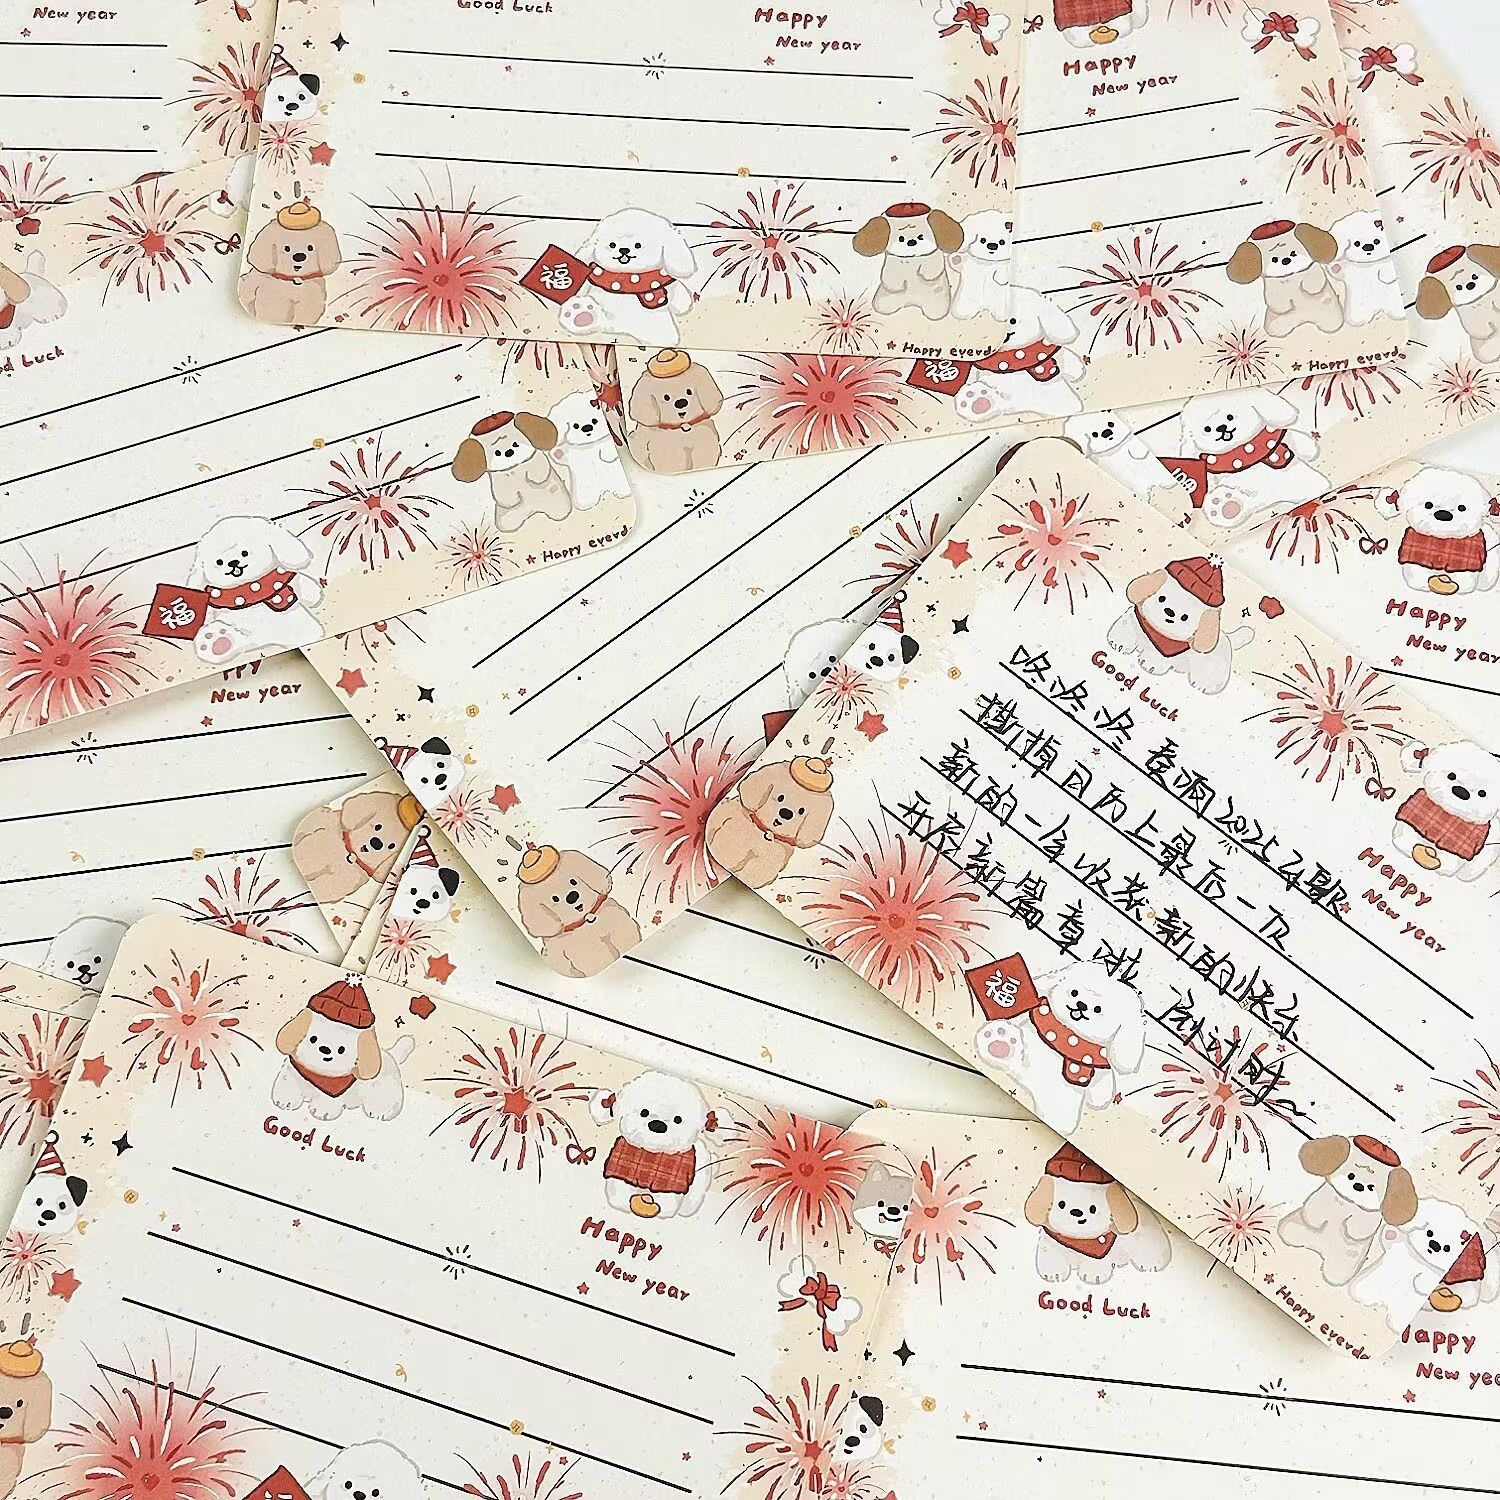 New year
Good Luck
Happy
New year
Happy
New year
福
Happy everd
福
Happy everd
Luck
福
Happy everd
New year
Happy
New year
Good Luck
咚咚咚 查收2025
撕掉日历上最后一页
新的一年收获新的快乐
开启新篇章啦 倒计时~
Happy
New year
福
Happy everda
Good Luck
Happy
New year
Good Luck
Happy
New year
福